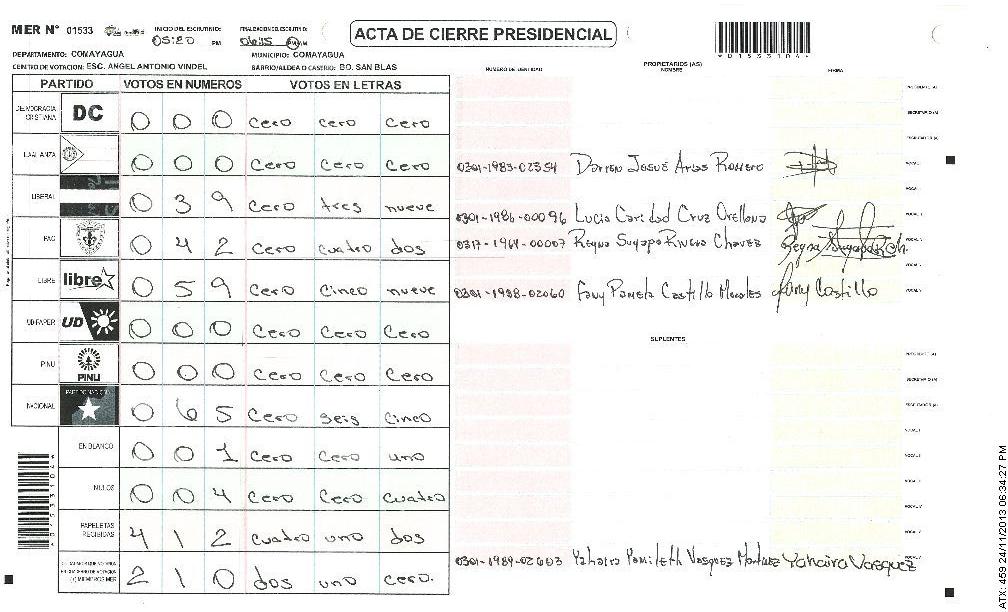 MER Nº 01533
INICIO DEL ESCRUTINIO: 05:20 PM
FINALIZACION DEL ESCRUTINIO: 06:15 PM/AM
ACTA DE CIERRE PRESIDENCIAL
DEPARTAMENTO: COMAYAGUA MUNICIPIO: COMAYAGUA
CENTRO DE VOTACION: ESC. ANGEL ANTONIO VINDEL BARRIO/ALDEA O CASERIO: BO. SAN BLAS
PARTIDO VOTOS EN NUMEROS VOTOS EN LETRAS
DEMOCRACIA CRISTIANA DC 0 0 0 cero cero cero
LA ALIANZA 0 0 0 cero cero cero
LIBERAL 0 3 9 cero tres nueve
PAC 0 4 2 cero cuatro dos
LIBRE libre 0 5 9 cero cinco nueve
UD FAPER UD 0 0 0 cero cero cero
PINU PINU 0 0 0 cero cero cero
NACIONAL PARTIDO NACIONAL 0 6 5 cero seis cinco
EN BLANCO 0 0 1 cero cero uno
NULOS 0 0 4 cero cero cuatro
PAPELETAS RECIBIDAS 4 1 2 cuatro uno dos
2 1 0 dos uno cero.
NUMERO DE IDENTIDAD PROPIETARIOS (AS) NOMBRE FIRMA
PRESIDENTE (A)
SECRETARIO (A)
ESCRUTADOR (A)
0301-1983-02354 Darren Josué Arias Romero VOCAL I
0301-1986-00096 Lucia Caridad Cruz Orellana
0317-1964-00007 Reyna Suyapa Rivera Chavez
0301-1988-02060 Fany Pamela Castillo Morales Fany Castillo VOCAL V
SUPLENTES
PRESIDENTE (A)
SECRETARIO (A)
ESCRUTADOR (A)
VOCAL I
VOCAL II
VOCAL III
VOCAL IV
VOCAL V
0301-1989-02603 Yahaira Yamileth Vasquez Martinez Yahaira Vasquez
ATX: 459 24/11/2013 06:34:27 PM